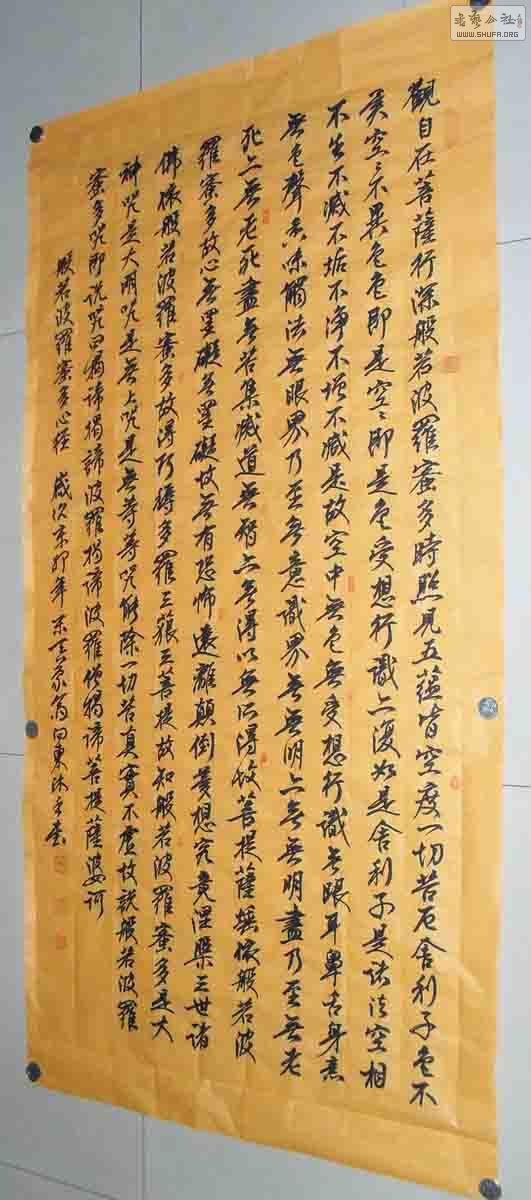 觀自在菩薩行深般若波羅蜜多時照見五蘊皆空度一切苦厄舍利子色不
異空空不異色色即是空空即是色受想行識亦復如是舍利子是諸法空相
不生不滅不垢不淨不增不減是故空中無色無受想行識無眼耳鼻舌身意
無色聲香味觸法無眼界乃至無意識界無無明亦無無明盡乃至無老
死亦無老死盡無苦集滅道無智亦無得以無所得故菩提薩埵依般若波
羅蜜多故心無罣礙無罣礙故無有恐怖遠離顛倒夢想究竟涅槃三世諸
佛依般若波羅蜜多故得阿耨多羅三藐三菩提故知般若波羅蜜多是大
神咒是大明咒是無上咒是無等等咒能除一切苦真實不虛故說般若波羅
蜜多咒即說咒曰揭諦揭諦波羅揭諦波羅僧揭諦菩提薩婆訶
般若波羅蜜多心經 歲次 卯年
书艺公社
WWW.SHUFA.ORG